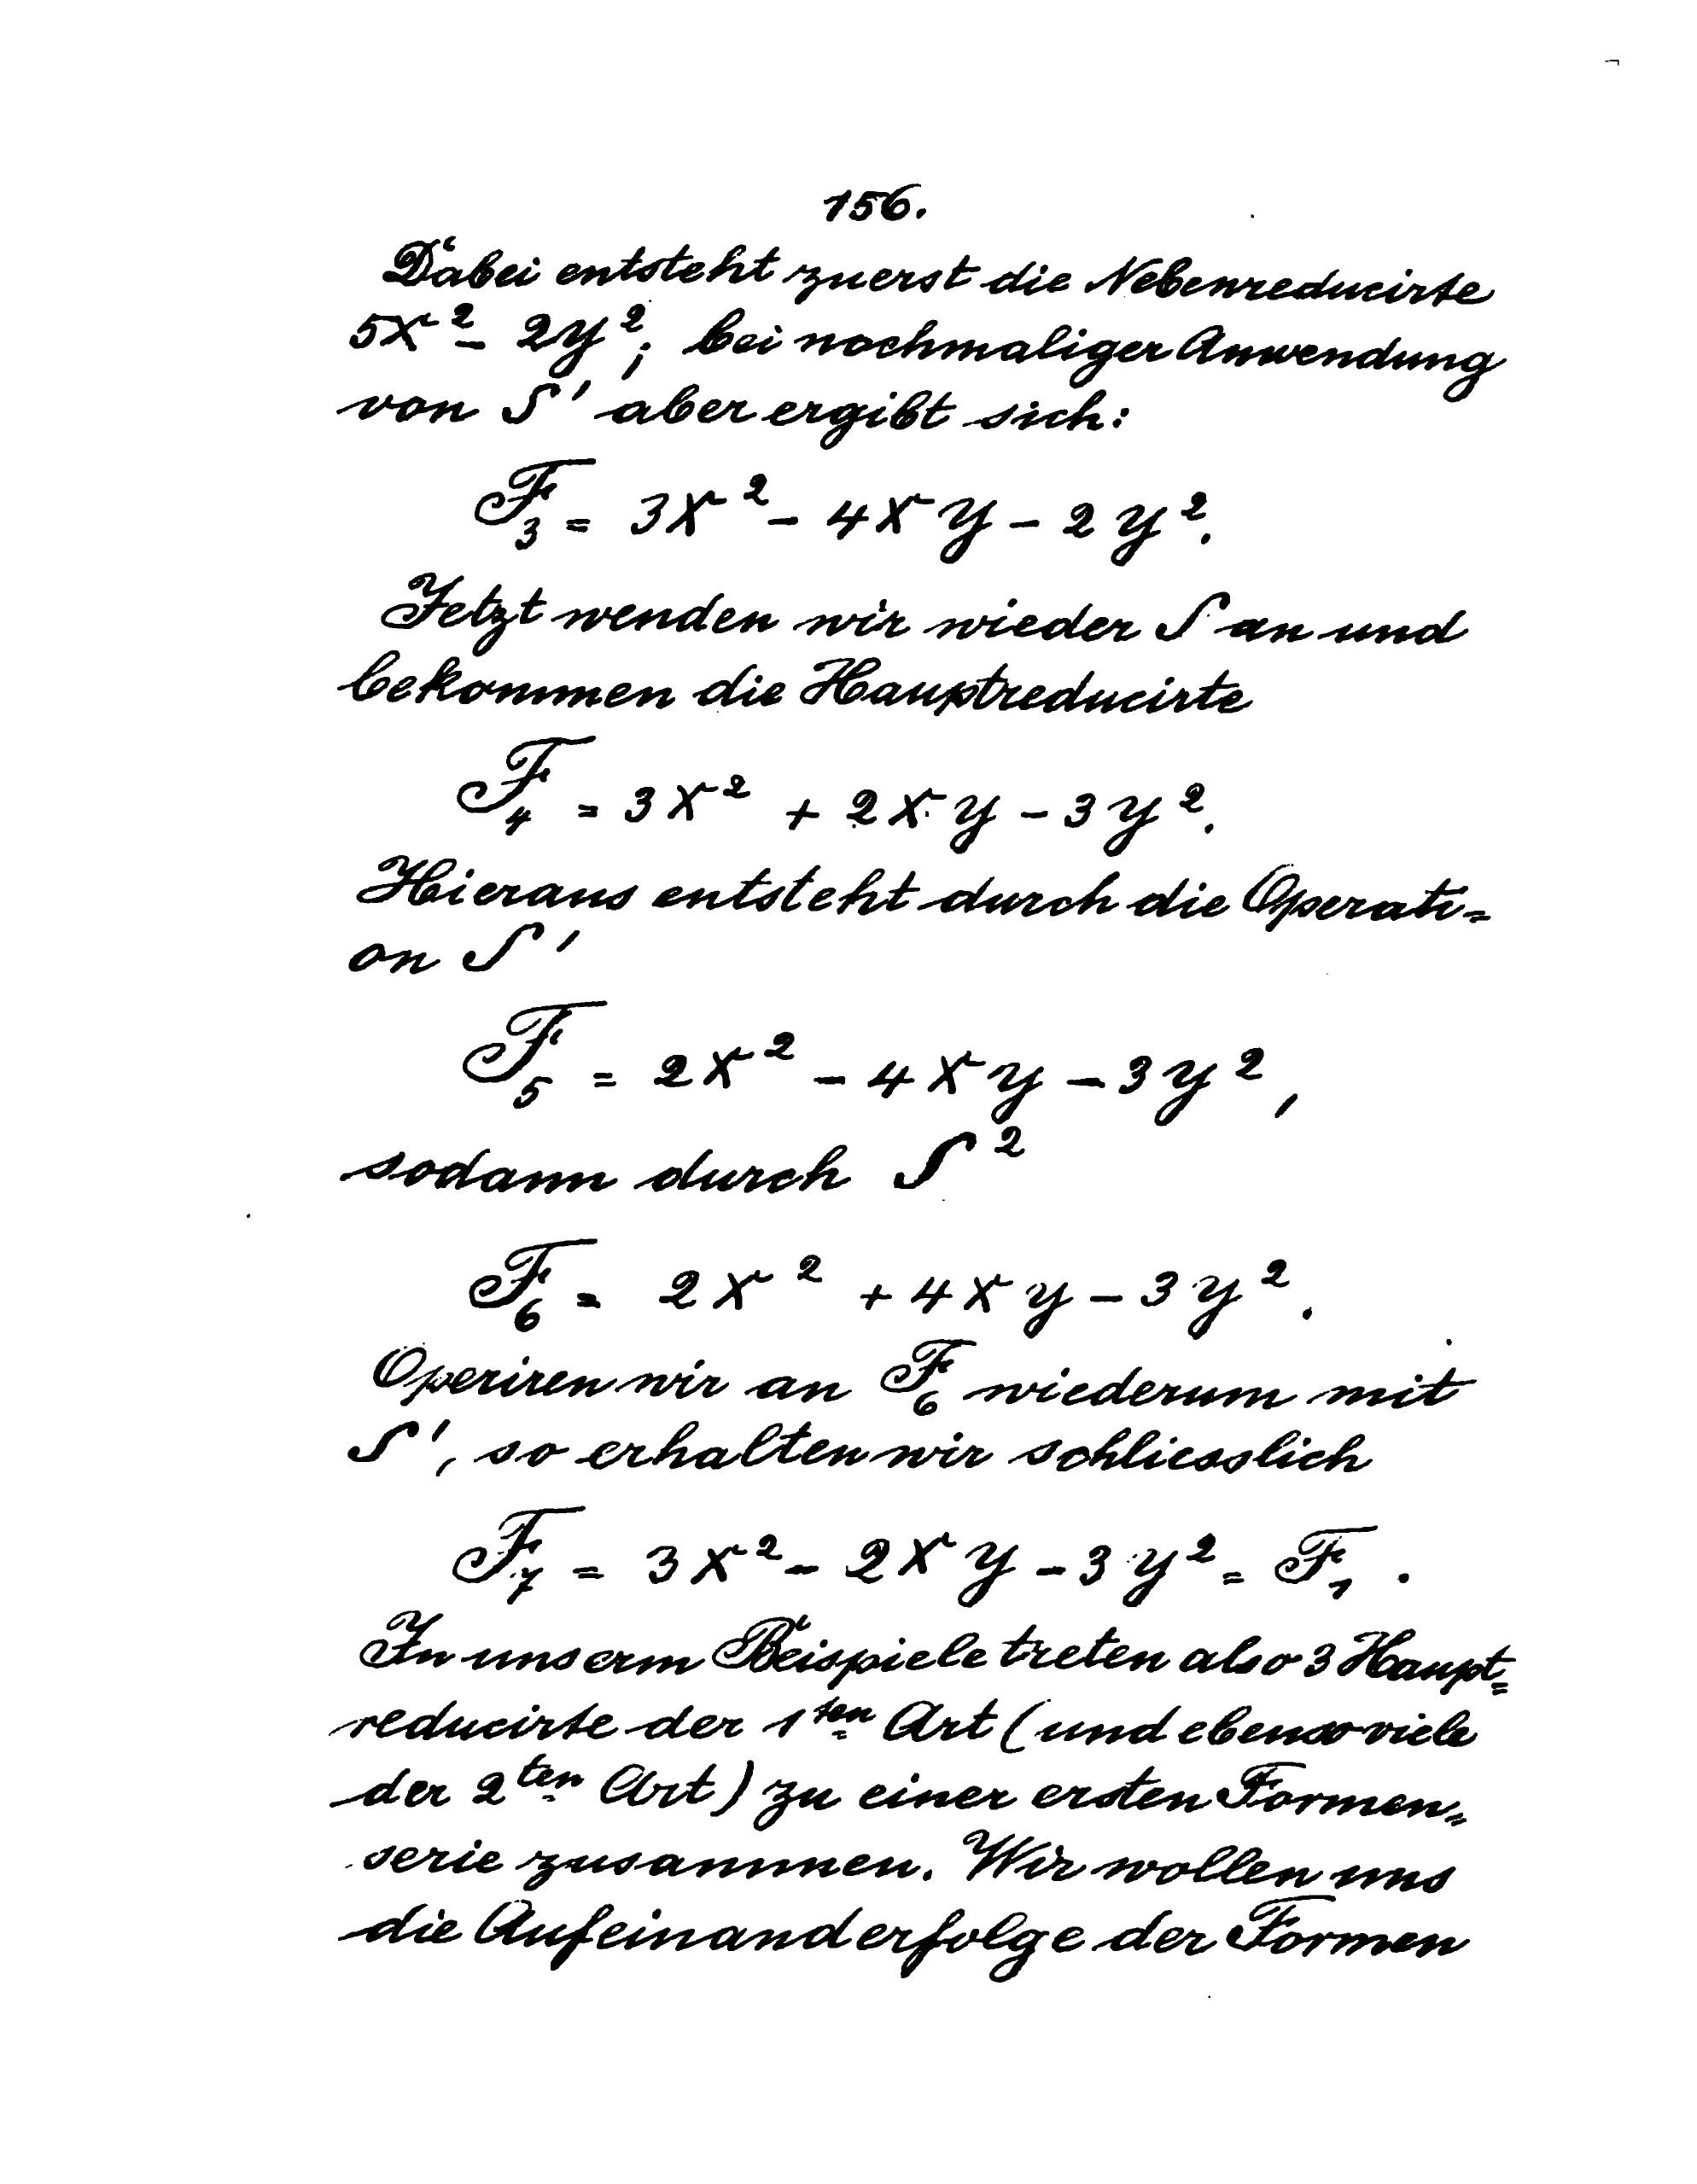 156.
Dabei entsteht zuerst die Nebenreducirte
5x² - 2y²; bei nochmaliger Anwendung
von S' aber ergibt sich:
F₃ = 3x² - 4xy - 2y².
Jetzt wenden wir wieder S an und
bekommen die Hauptreducirte
F₄ = 3x² + 2xy - 3y².
Hieraus entsteht durch die Operati=
on S'
F₅ = 2x² - 4xy - 3y²,
sodann durch S²
F₆ = 2x² + 4xy - 3y².
Operiren wir an F₆ wiederum mit
S', so erhalten wir schliesslich
F₇ = 3x² - 2xy - 3y² = F₁.
In unserm Beispiele treten also 3 Haupt=
reducirte der 1ten Art (und ebenso viele
der 2ten Art) zu einer ersten Formen=
serie zusammen. Wir wollen uns
die Aufeinanderfolge der Formen